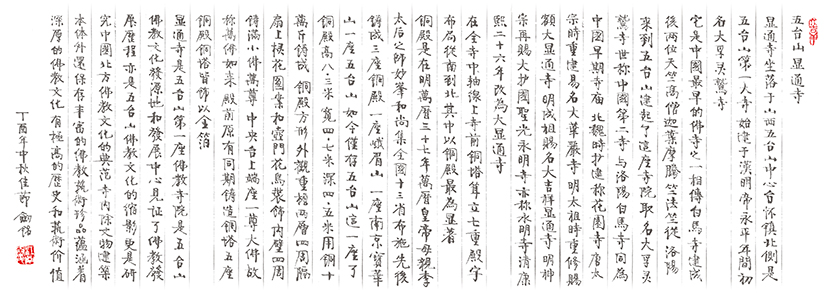 五台山显通寺
显通寺坐落于山西五台山中心台怀镇北侧是
五台山第一大寺始建于汉明帝永平年间初
名大孚灵鹫寺
它是中国最早的佛寺之一相传白马寺建成
后两位天竺高僧迦叶摩腾竺法兰从洛阳
来到五台山建起了这座寺院取名大孚灵
鹫寺世称中国第二寺与洛阳白马寺同为
中国早期寺庙北魏时扩建称花园寺唐太
宗时重建易名大华严寺明太祖时重修赐
额大显通寺明成祖赐名大吉祥显通寺明神
宗再赐大护国圣光永明寺亦称永明寺清康
熙二十六年改为大显通寺
在全寺中轴线上寺前铜塔耸立七重殿宇
布局从南到北其中以铜殿最为显著
铜殿是在明万历三十七年万历皇帝母亲李
太后之师妙峰和尚集全国十三省布施先后
铸成三座铜殿一座峨眉山一座南京宝华
山一座五台山如今仅存五台山这一座了
铜殿高八·三米宽四·七米深四·五米用铜十
万斤铸成铜殿方形外观重檐两层四周隔
扇上棂花图案和壶门花鸟装饰内壁四周
铸满小佛万尊中央台上端座一尊大佛故
称万佛如来殿前原有同期铸造铜塔五座
铜殿铜塔皆饰以金箔
显通寺是五台山第一座佛教寺院是五台山
佛教文化发源地和发展中心见证了佛教发
展历程亦是五台山佛教文化的缩影更是研
究中国北方佛教文化的典范寺内除文物建筑
本体外还保存丰富的佛教艺术珍品蕴涵着
深厚的佛教文化有极高的历史和艺术价值
丁酉年中秋佳节